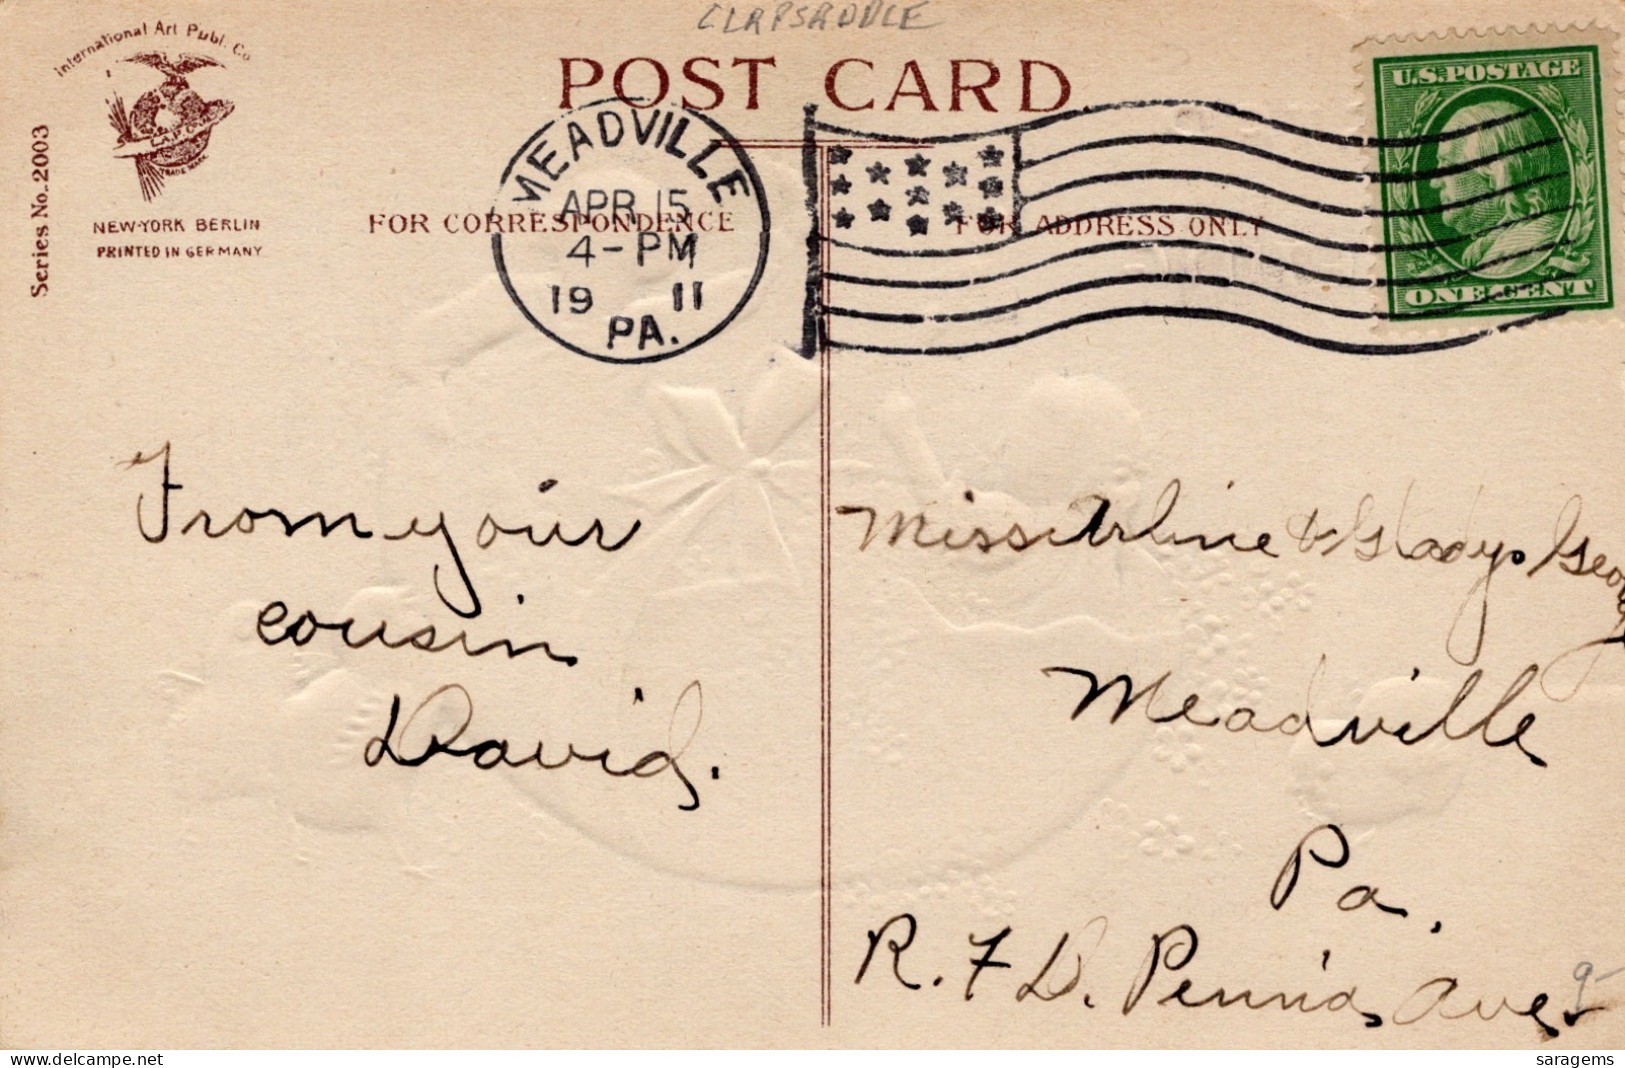 CLAPSADDLE
International Art Publ. Co
POST CARD
U.S.POSTAGE
MEADVILLE
APR 15
4-PM
19 11
PA.
TRADE MARK
NEW-YORK BERLIN
PRINTED IN GERMANY
Series No. 2003
FOR CORRESPONDENCE
FOR ADDRESS ONLY
ONE CENT
From your
cousin
David.
Miss Arline & Gladys
Meadville
Pa.
R. F D. Penn'a Ave.
saragems